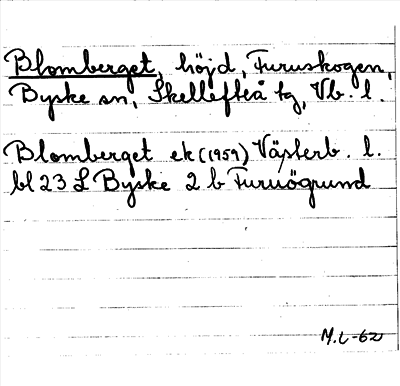 Blomberget, höjd, Furuskogen,
Byske sn, Skellefteå tg, Vb. l.
Blomberget ek (1959) Västerb. l.
bl 23 L Byske 2 b Furuögrund
M.L-62